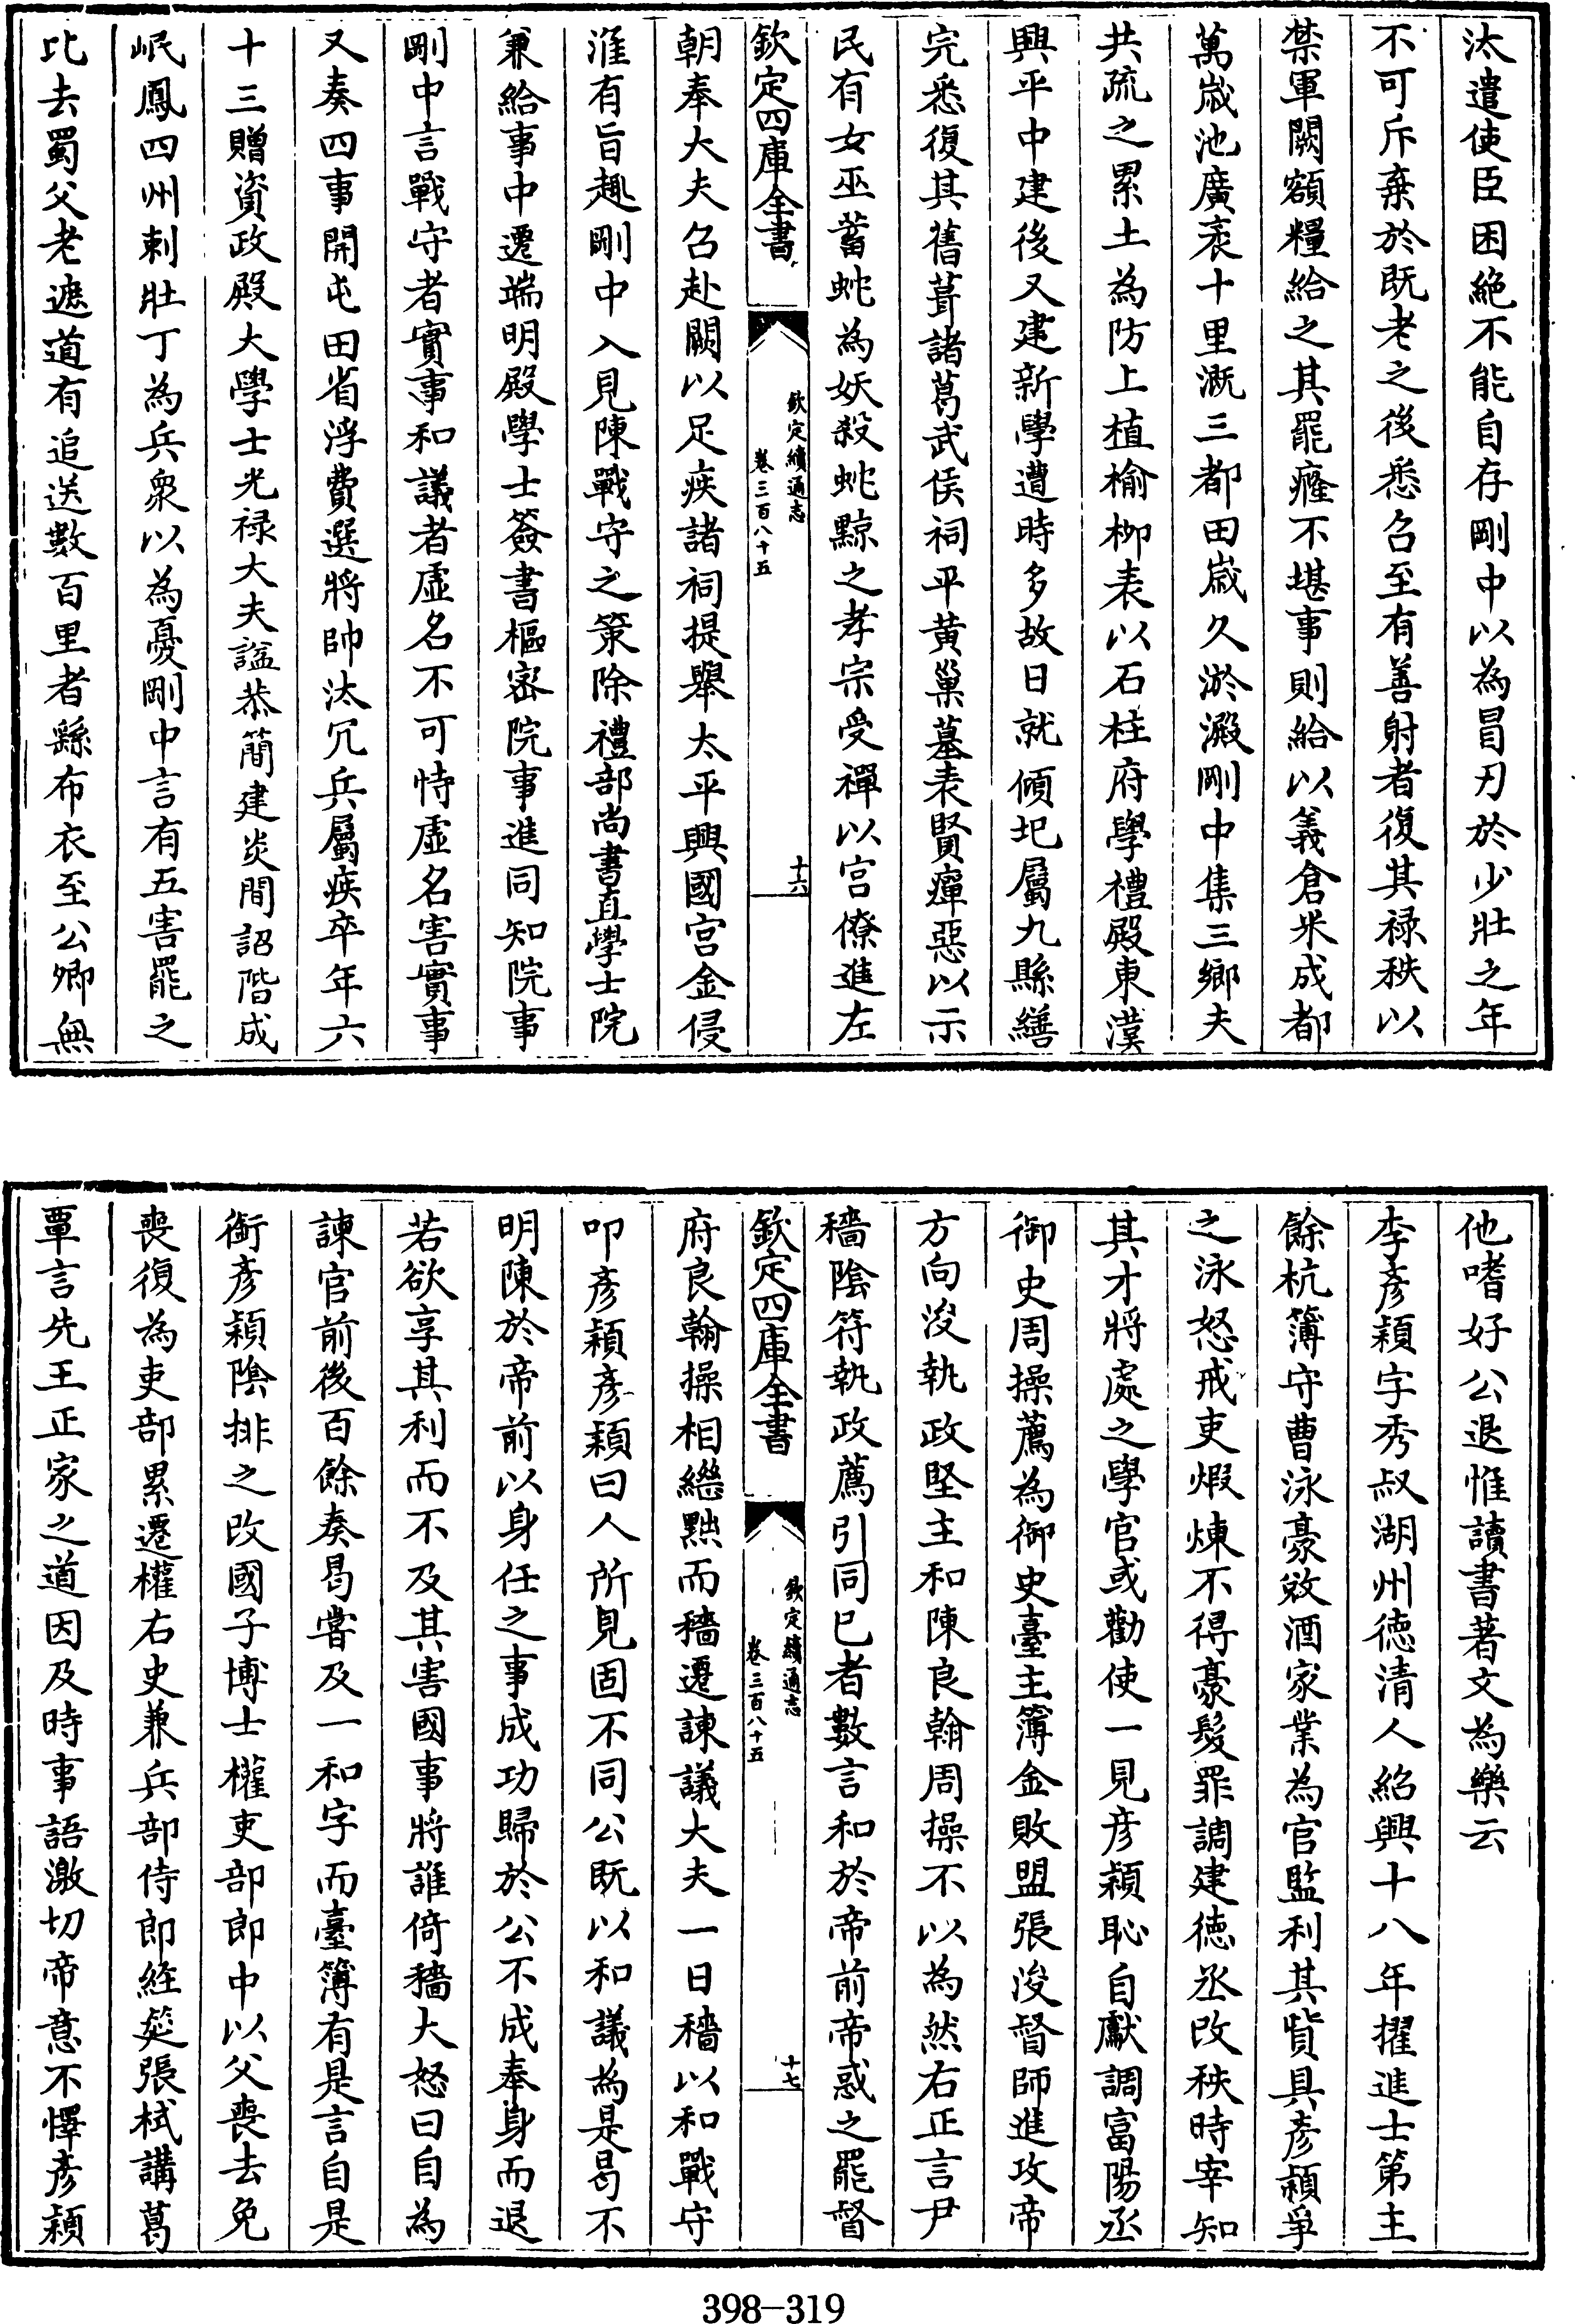 汰遣使臣困絶不能自存剛中以為冒刃於少壯之年
不可斥棄於既老之後悉召至有善射者復其禄秩以
禁軍闕額糧給之其罷癃不堪事則給以義倉米成都
萬嵗池廣袤十里溉三都田嵗久淤澱剛中集三鄉夫
共疏之累土為防上植榆柳表以石柱府學禮殿東漢
興平中建後又建新學遭時多故日就傾圮屬九縣繕
完悉復其舊葺諸葛武侯祠平黄巢墓表賢癉惡以示
民有女巫蓄蛇為妖殺蛇黥之孝宗受禪以宫僚進左
欽定四庫全書
欽定續通志
卷三百八十五
十六
朝奉大夫召赴闕以足疾請祠提舉太平興國宫金侵
淮有旨趣剛中入見陳戰守之策除禮部尚書直學士院
兼給事中遷端明殿學士簽書樞密院事進同知院事
剛中言戰守者實事和議者虛名不可恃虛名害實事
又奏四事開屯田省浮費選將帥汰冗兵屬疾卒年六
十三贈資政殿大學士光禄大夫諡恭簡建炎間詔階成
岷鳳四州刺壯丁為兵衆以為憂剛中言有五害罷之
比去蜀父老遮道有追送數百里者繇布衣至公卿無
他嗜好公退惟讀書著文為樂云
李彦穎字秀叔湖州德清人紹興十八年擢進士第主
餘杭簿守曹泳豪奪酒家業為官監利其貲具彦穎爭
之泳怒戒吏煆煉不得豪髮罪調建德丞改秩時宰知
其才將處之學官或勸使一見彦穎恥自獻調富陽丞
御史周操薦為御史臺主簿金敗盟張浚督師進攻帝
方向浚執政堅主和陳良翰周操不以為然右正言尹
穡陰符執政薦引同已者數言和於帝前帝惑之罷督
欽定四庫全書
欽定續通志
卷三百八十五
十七
府良翰操相繼黜而穡遷諫議大夫一日穡以和戰守
叩彦穎彦穎曰人所見固不同公既以和議為是曷不
明陳於帝前以身任之事成功歸於公不成奉身而退
若欲享其利而不及其害國事將誰倚穡大怒曰自為
諫官前後百餘奏曷嘗及一和字而臺簿有是言自是
銜彦穎陰排之改國子博士權吏部郎中以父喪去免
喪復為吏部累遷權右史兼兵部侍郎經筵張栻講葛
覃言先王正家之道因及時事語激切帝意不懌彦穎
398-319